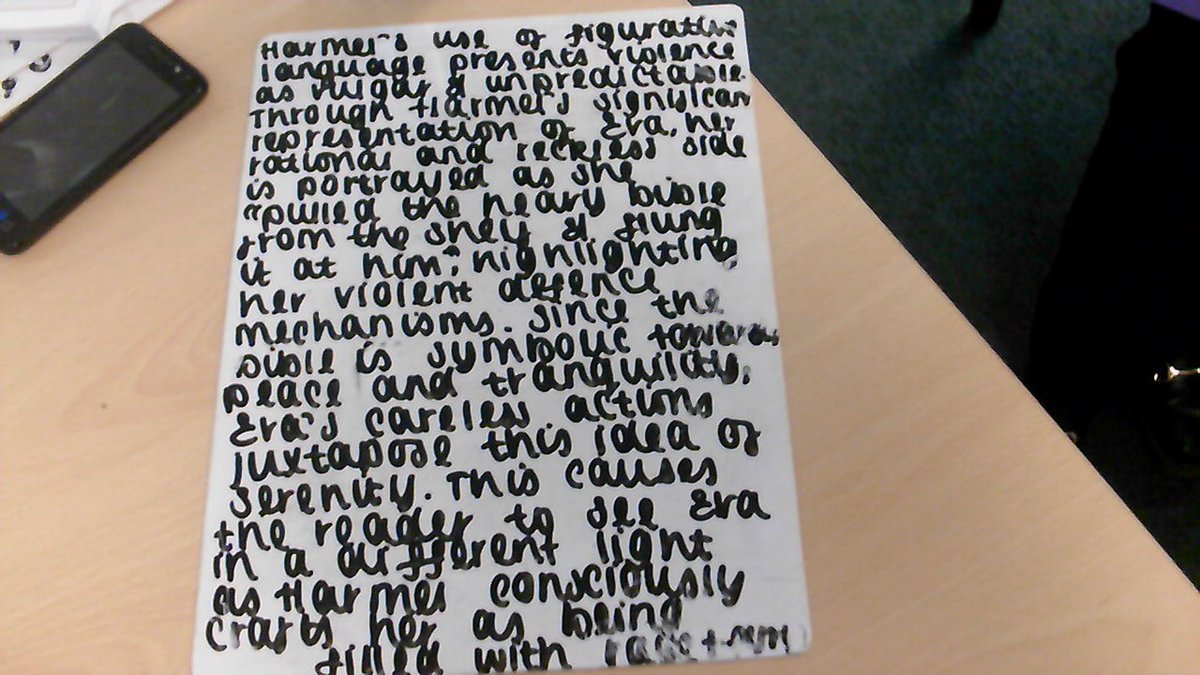 Harmel's use of figurative
language presents violence
as vulgar & unpredictable.
Through Harmel's significan
representation of Eva, her
rational and reckless side
is portrayed as she
"pulled the heavy bible
from the shelf & flung
it at him" highlighting
her violent defence
mechanisms. Since the
bible is symbolic towards
peace and tranquility,
Eva's careless actions
juxtapose this idea of
serenity. This causes
the reader to see Eva
in a different light
as Harmel consciously
crafts her as being
filled with rage +